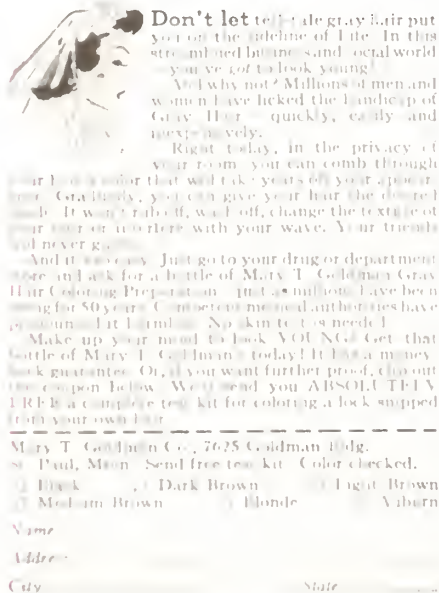 Don't let tell-tale gray hair put
you on the sideline of Life. In this
streamlined business and social world
— you've got to look young!
And why not? Millions of men and
women have licked the Handicap of
Gray Hair — quickly, easily and
inexpensively.
Right today, in the privacy of
your room you can comb through
your hair a color that will take years off your appear-
ance. Gradually, you can give your hair the desired
shade. It won't rub off, wash off, change the texture of
your hair or interfere with your wave. Your friends
will never
And it is so easy. Just go to your drug or department
store and ask for a bottle of Mary T. Goldman Gray
Hair Coloring Preparation — just as millions have been
doing for 50 years. Competent medical authorities have
pronounced it harmless. No skin test is needed.
Make up your mind to look YOUNG! Get that
bottle of Mary T. Goldman's today! It has a money-
back guarantee. Or, if you want further proof, clip out
the coupon below. We'll send you ABSOLUTELY
FREE a complete test kit for coloring a lock snipped
from your own hair.
Mary T. Goldman Co., 7625 Goldman Bldg.
St. Paul, Minn. Send free test kit. Color checked.
Black Dark Brown Light Brown
Medium Brown Blonde Auburn
Name
Address
City State